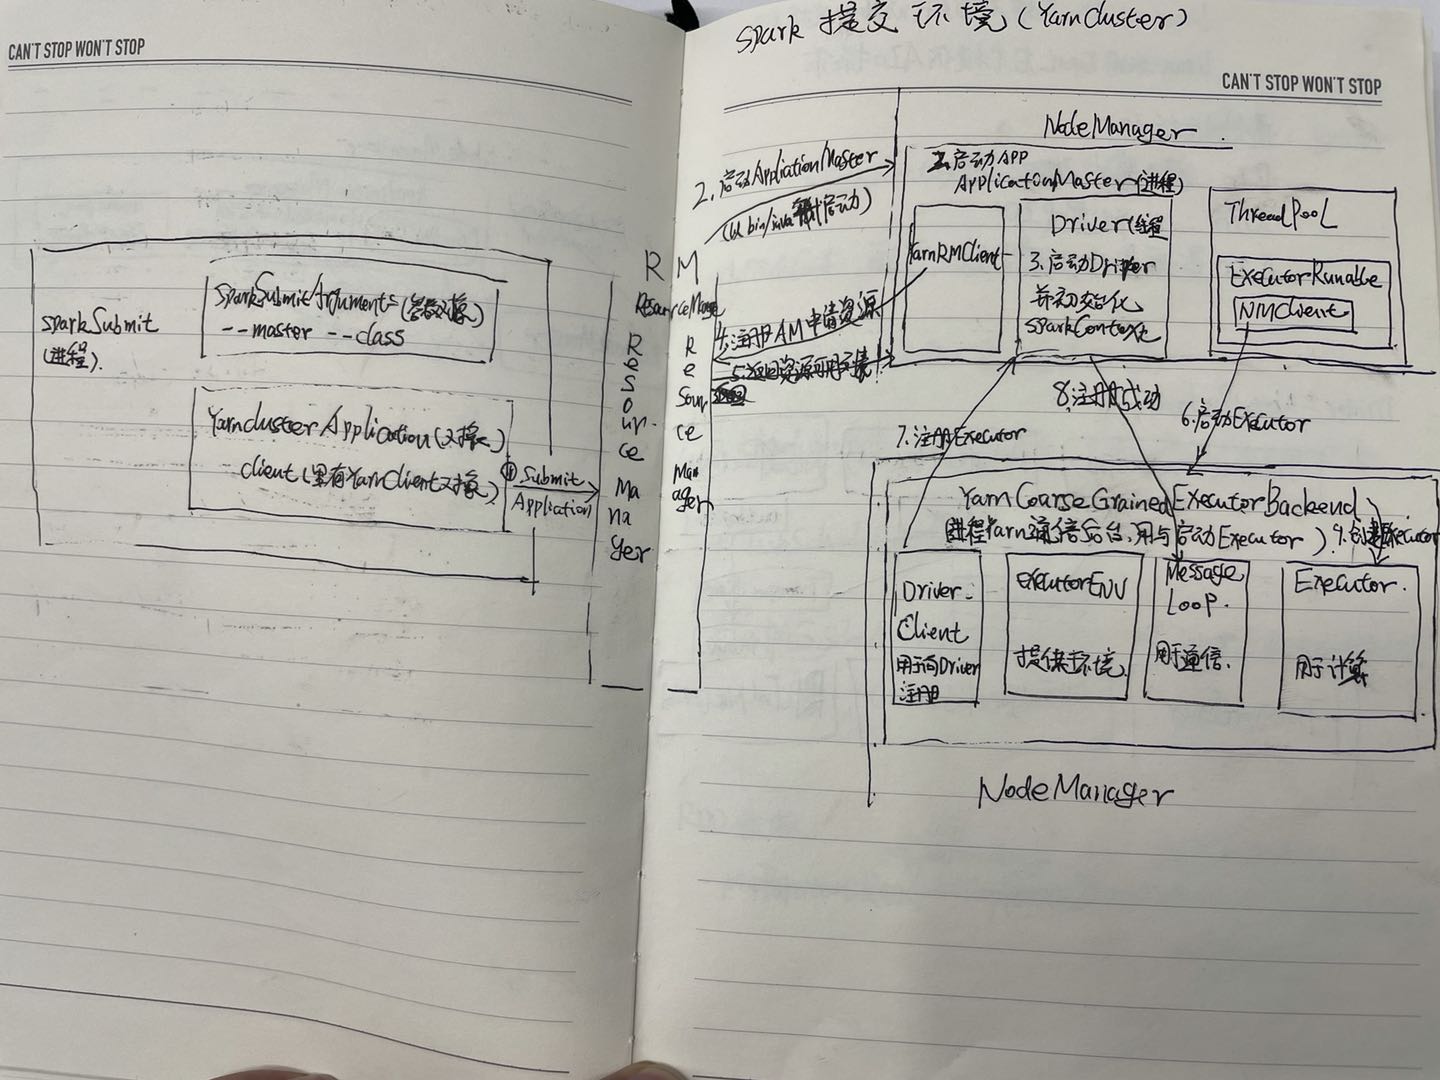 CAN'T STOP WON'T STOP
SparkSubmit
(进程).
SparkSubmitArguments(参数对象)
--master --class
YarnclusterApplication(对象)
client(里有YarnClient对象)
① Submit
Application
R M
ResourceManage
R
e
s
o
ur
ce
Ma
na
ger
R
e
Sour
ce
Man
ager
Spark 提交环境(Yarncluster)
CAN'T STOP WON'T STOP
NodeManager
2. 启动AppliationMaster
(以 bin/java 启动)
启动APP
ApplicationMaster(进程)
YarnRMClient
Driver(线程
3.启动Driver
并初始化
SparkContext
ThreadPooL
ExecutorRunable
NMClient
4.注册AM申请资源
5.返回资源可用列表
8.注册成功
6.启动Executor
7.注册Executor
YarnCoarseGrainedExecutorBackend
(进程Yarn通信后台、用与启动Executor)
9.创建Executor
Driver-
Client
用于向Driver
注册
executorENV
提供环境
Message
Loop.
用于通信.
Executor.
用于计算
NodeManager